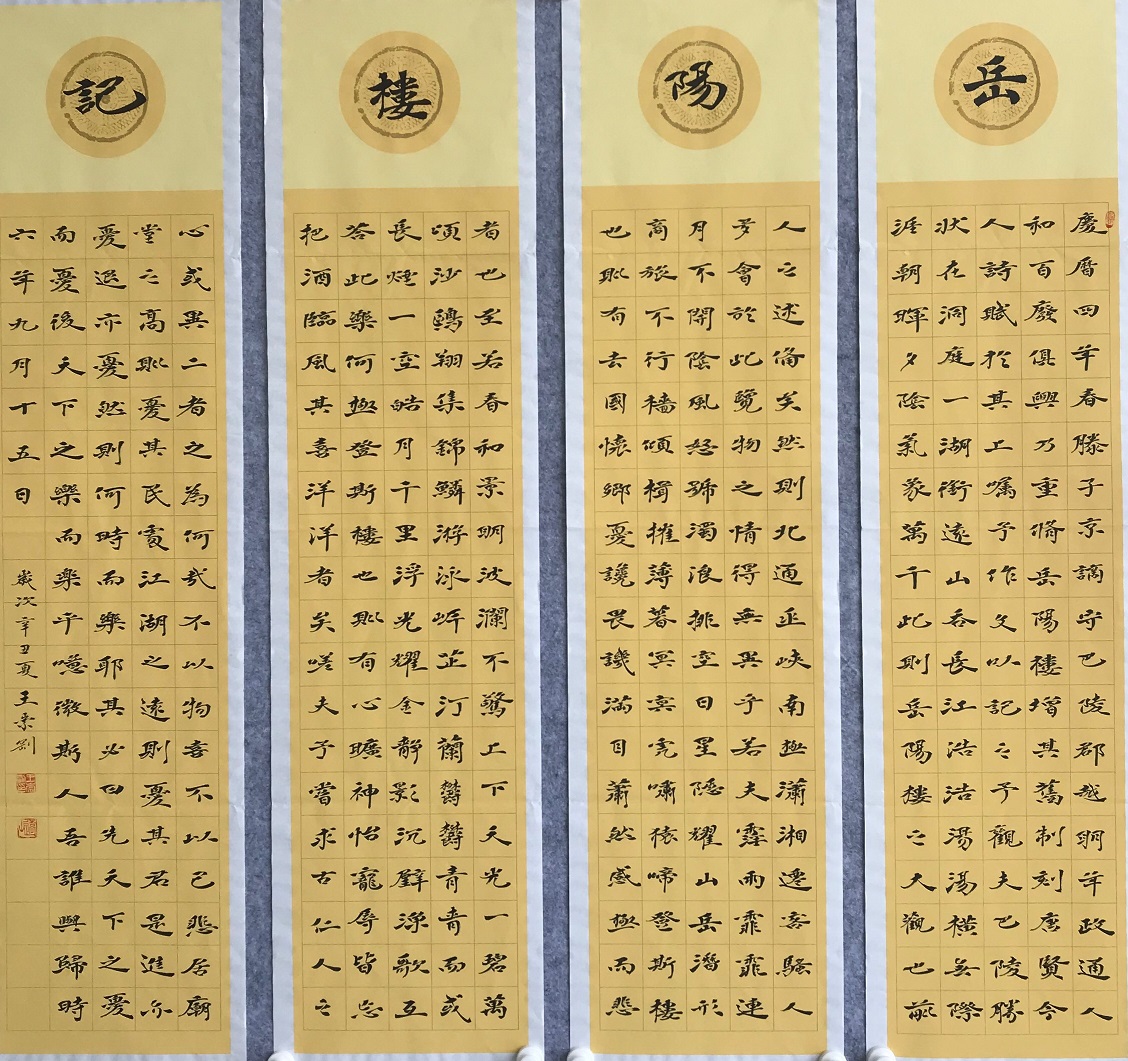 岳
慶曆四年春滕子京謫守巴陵郡越明年政通人
和百廢俱興乃重脩岳陽樓增其舊制刻唐賢今
人詩賦於其上囑予作文以記之予觀夫巴陵勝
狀在洞庭一湖銜遠山吞長江浩浩湯湯橫無際
涯朝暉夕陰氣象萬千此則岳陽樓之大觀也前
陽
人之述備矣然則北通巫峽南極瀟湘遷客騷人
多會於此覽物之情得無異乎若夫霪雨霏霏連
月不開陰風怒號濁浪排空日星隱耀山岳潛形
商旅不行檣傾楫摧薄暮冥冥虎嘯猿啼登斯樓
也則有去國懷鄉憂讒畏譏滿目蕭然感極而悲
樓
者也至若春和景明波瀾不驚上下天光一碧萬
頃沙鷗翔集錦鱗游泳岸芷汀蘭鬱鬱青青而或
長煙一空皓月千里浮光耀金靜影沉璧漁歌互
答此樂何極登斯樓也則有心曠神怡寵辱皆忘
把酒臨風其喜洋洋者矣嗟夫予嘗求古仁人之
記
心或異二者之為何哉不以物喜不以己悲居廟
堂之高則憂其民處江湖之遠則憂其君是進亦
憂退亦憂然則何時而樂耶其必曰先天下之憂
而憂後天下之樂而樂乎噫微斯人吾誰與歸時
六年九月十五日
歲次辛丑夏王